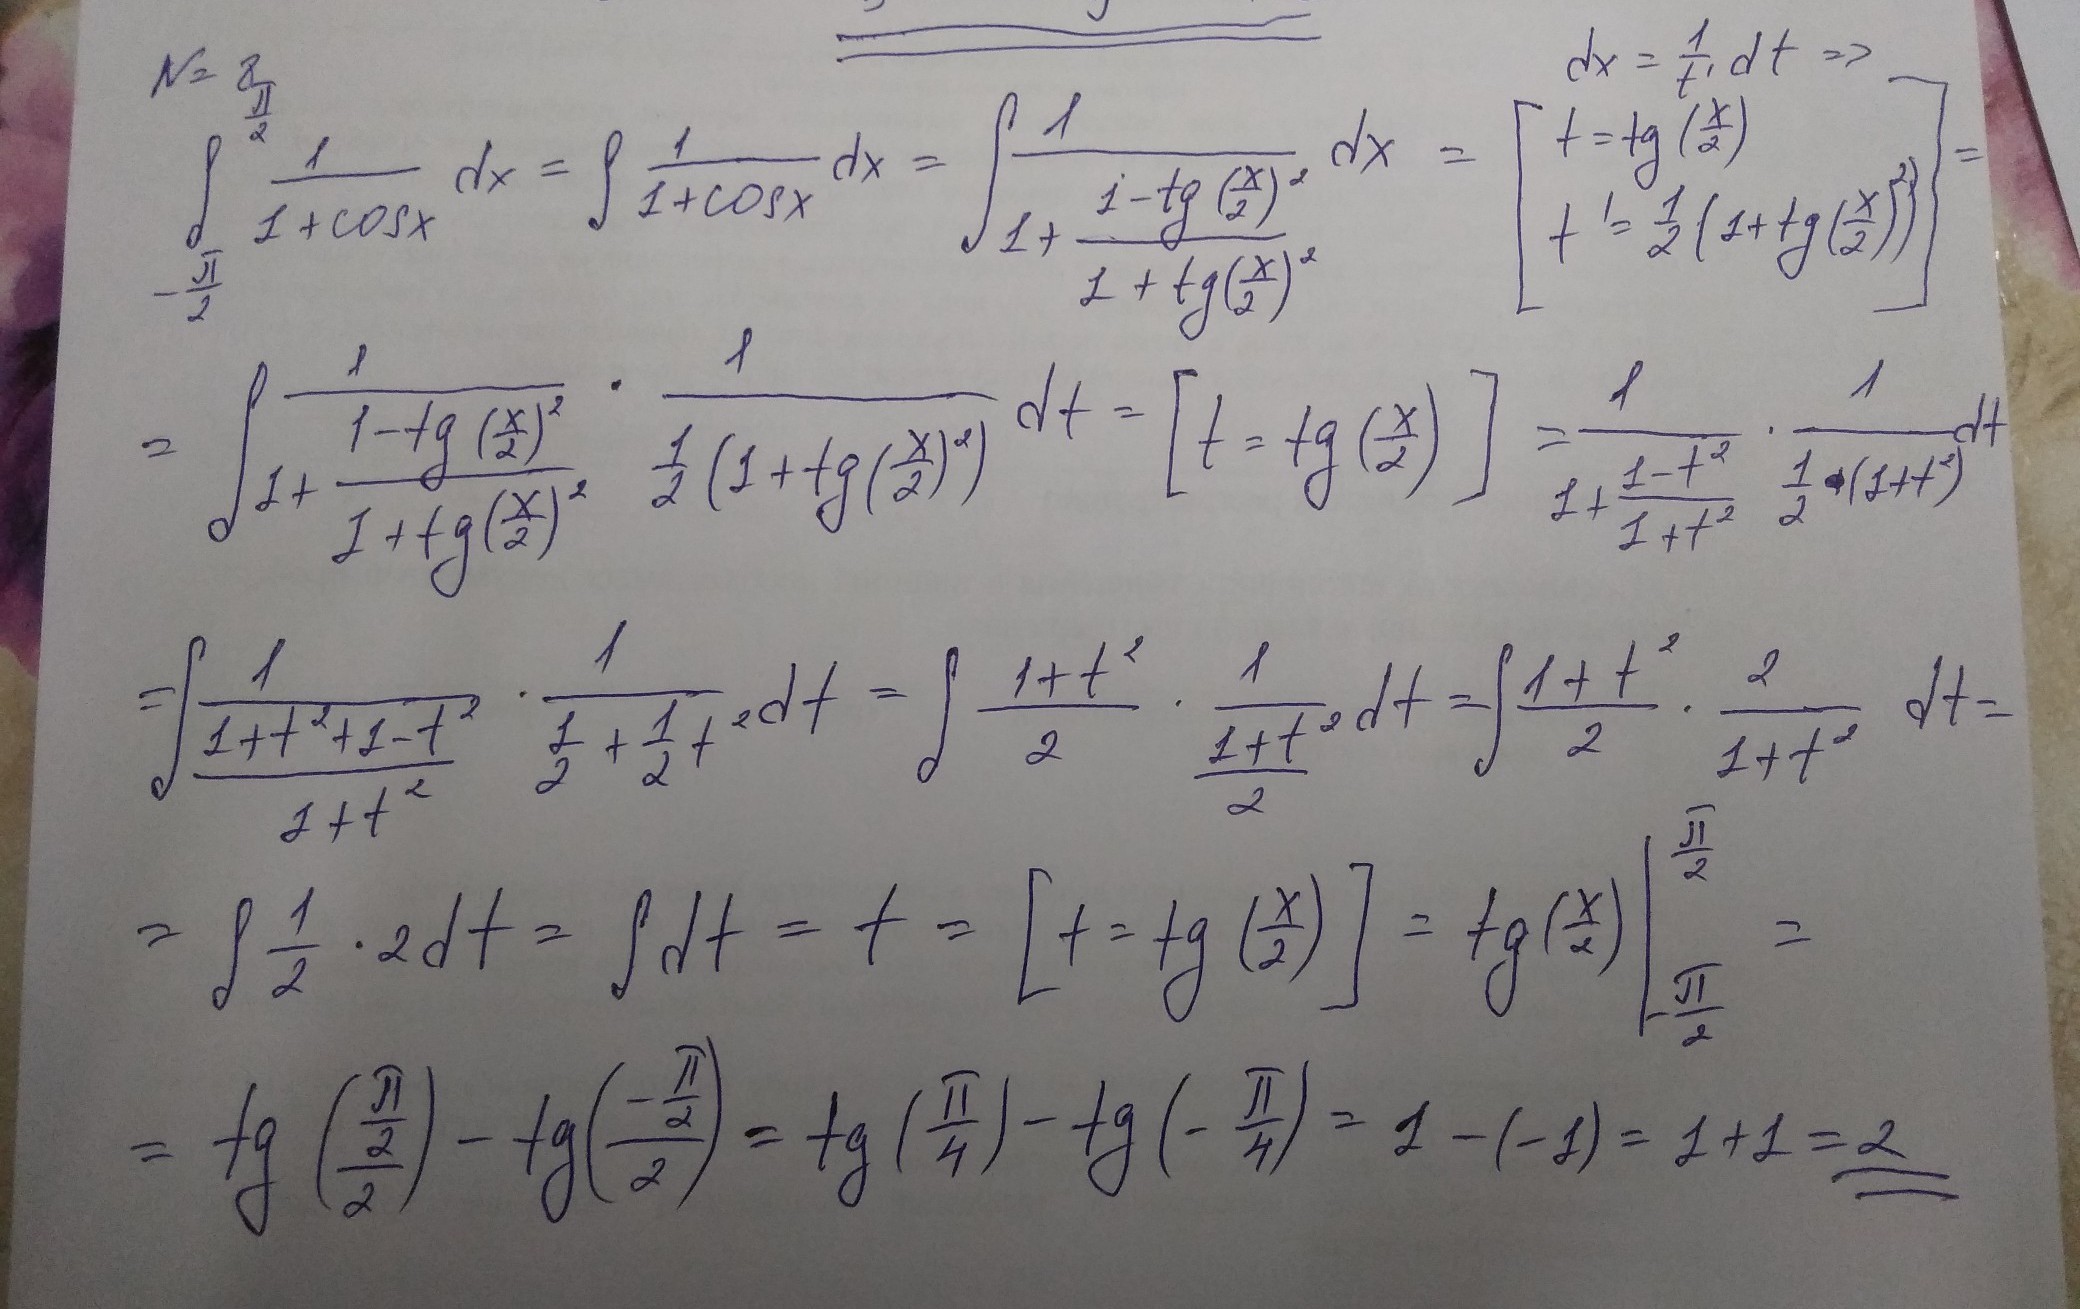 N= 8
dx = 1/t' dt =>
∫_{-π/2}^{π/2} 1/(1+cosx) dx = ∫ 1/(1+cosx) dx = ∫ 1/(1+(1-tg(x/2)²)/(1+tg(x/2)²)) dx = [t=tg(x/2) t'=1/2(1+tg(x/2)²)] =
= ∫ 1/(1+(1-tg(x/2)²)/(1+tg(x/2)²)) · 1/(1/2(1+tg(x/2)²)) dt = [t=tg(x/2)] = 1/(1+(1-t²)/(1+t²)) · 1/(1/2·(1+t²)) dt
= ∫ 1/((1+t²+1-t²)/(1+t²)) · 1/(1/2+1/2t²) dt = ∫ (1+t²)/2 · 1/((1+t²)/2) dt = ∫ (1+t²)/2 · 2/(1+t²) dt =
= ∫ 1/2 · 2dt = ∫dt = t = [t=tg(x/2)] = tg(x/2)|_{-π/2}^{π/2} =
= tg((π/2)/2) - tg((-π/2)/2) = tg(π/4) - tg(-π/4) = 1-(-1) = 1+1 = 2